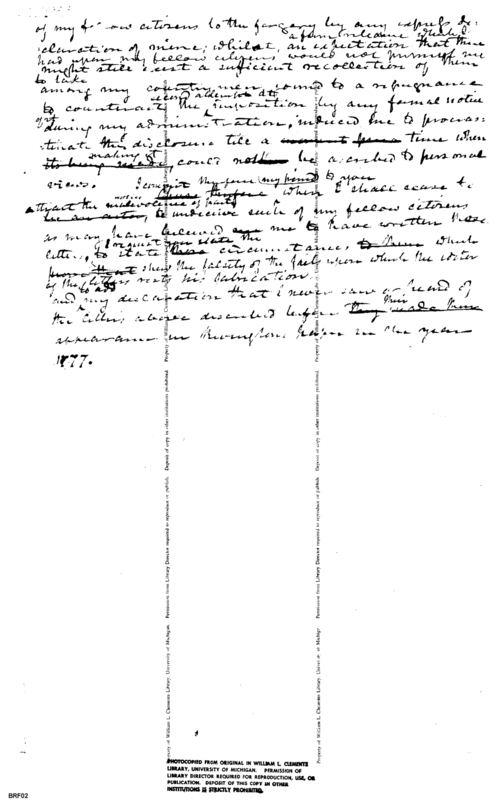 of my fellow citizens to the forgery by any express de-
a firm reliance which I
claration of mine; whilst, an expectation that there
had upon my fellow citizens would not permit me
might still exist a sufficient recollection of them
to take
among my countrymen, joined to a repugnance
second attention to
to counteract the imposition by any formal notice
of it
during my administration, induced me to procras-
tinate this disclosure till a time when
making it
its being made, could not be ascribed to personal
views. I commit therefore my friend to you
motive when I shall cease to
attract the malevolence of party
be an actor, to undeceive such of my fellow citizens
as may have believed me to have written these
I request you state the
letters, to state these circumstances to them which
show the falsity of the facts upon which the writer
of the letters rests his fabrication
to add
and my declaration that I never saw or heard of
their
the letters above described before they made their
appearance in Rivington's paper in the year
1777.
Property of William L. Clements Library, University of Michigan. Permission from Library Director required to reproduce or publish. Deposit of copy in other institutions prohibited.
Property of William L. Clements Library, University of Michigan. Permission from Library Director required to reproduce or publish. Deposit of copy in other institutions prohibited.
PHOTOCOPIED FROM ORIGINAL IN WILLIAM L. CLEMENTS
LIBRARY, UNIVERSITY OF MICHIGAN. PERMISSION OF
LIBRARY DIRECTOR REQUIRED FOR REPRODUCTION, USE, OR
PUBLICATION. DEPOSIT OF THIS COPY IN OTHER
INSTITUTIONS IS STRICTLY PROHIBITED.
BRF02